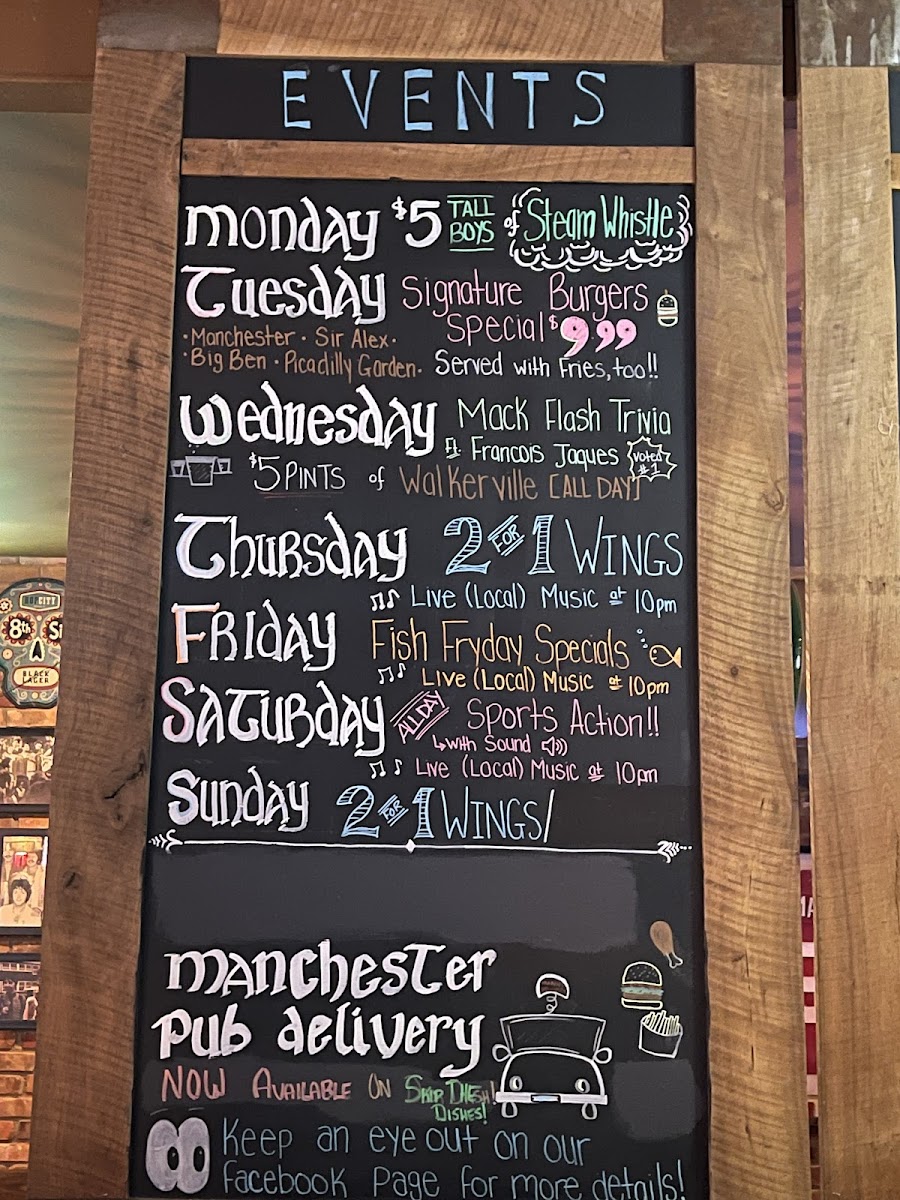 EVENTS
Monday $5 TALL BOYS of Steam Whistle
Tuesday Signature Burgers
Special $9.99
• Manchester • Sir Alex •
• Big Ben • Picadilly Garden • Served with Fries, too!!
Wednesday Mack Flash Trivia
ft. Francois Jaques voted #1
$5 PINTS of Walkerville [ALL DAY]
Thursday 2 FOR 1 WINGS
Live (Local) Music at 10pm
Friday Fish Fryday Specials
Live (Local) Music at 10pm
Saturday ALL DAY Sports Action!!
with Sound
Live (Local) Music at 10pm
Sunday 2 FOR 1 WINGS/
Manchester
Pub delivery
NOW AVAILABLE ON SKIP THE
DISHES!
Keep an eye out on our
Facebook Page for more details!
8th
BLACK LAGER